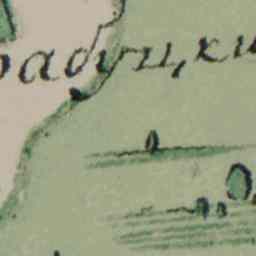 рабуцки